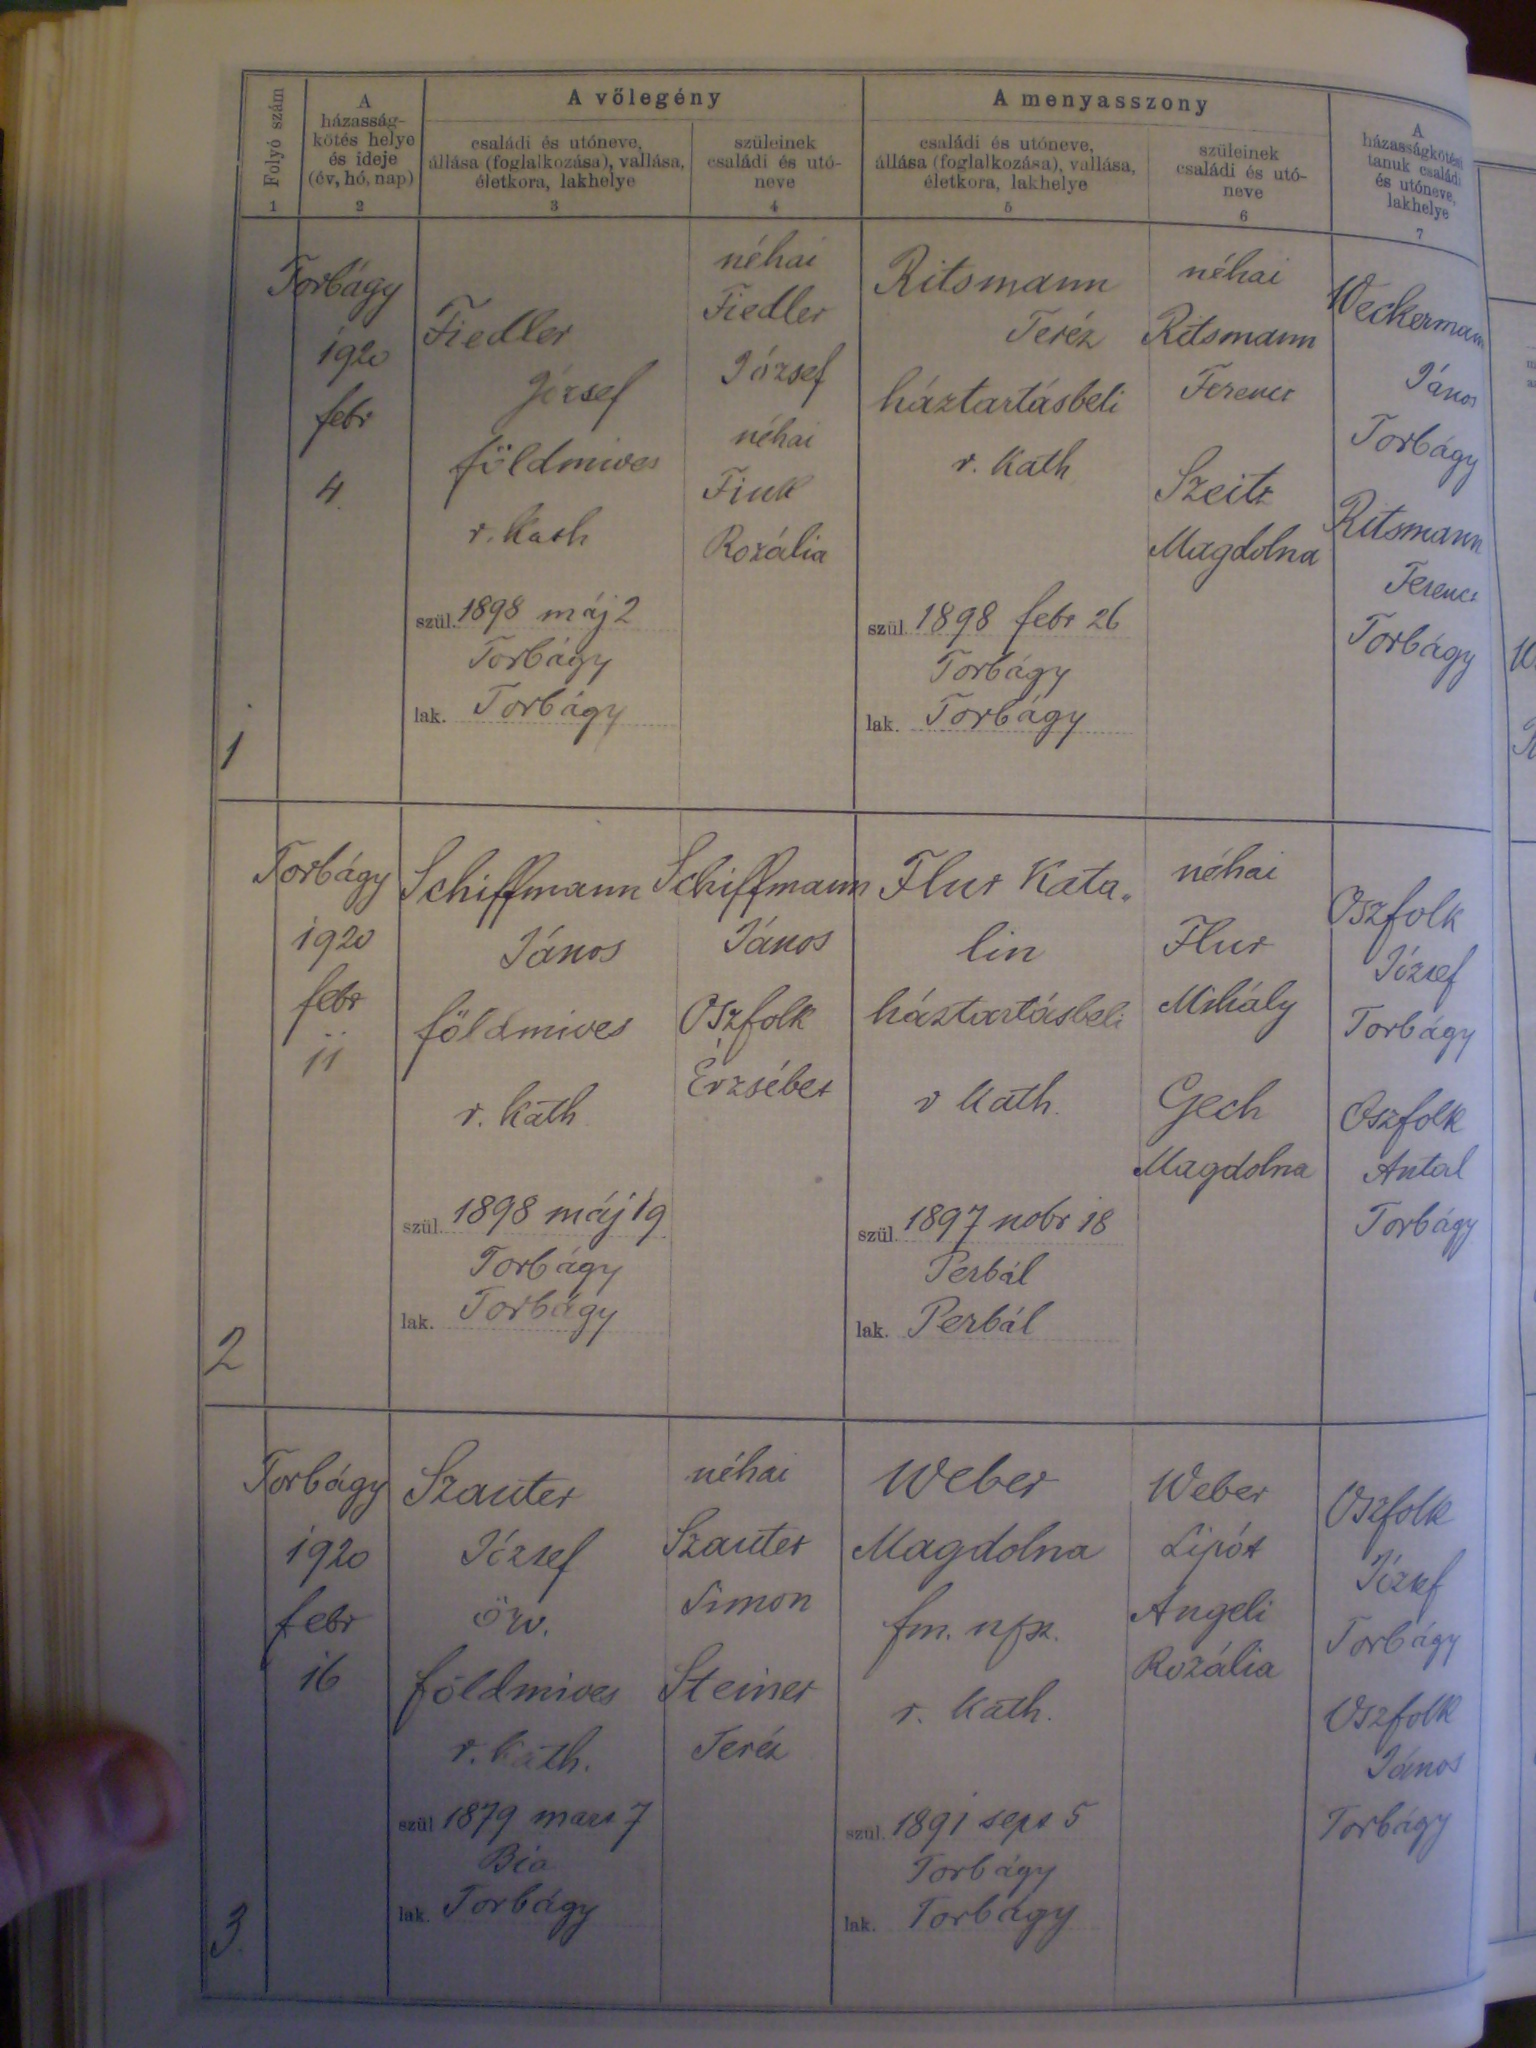 Folyó szám
1
A
házasság-
kötés helye
és ideje
(év, hó, nap)
2
A vőlegény
családi és utóneve,
állása (foglalkozása), vallása,
életkora, lakhelye
3
szüleinek
családi és utó-
neve
4
A menyasszony
családi és utóneve,
állása (foglalkozása), vallása,
életkora, lakhelye
5
szüleinek
családi és utó-
neve
6
A
házasságkötési
tanuk családi
és utóneve,
lakhelye
7
1
Torbágy
1920
febr
4.
Fiedler
József
földmives
r. Kath
szül. 1898 máj 2
Torbágy
lak. Torbágy
néhai
Fiedler
József
néhai
Fink
Rozália
Ritsmann
Teréz
háztartásbeli
r. Kath
szül. 1898 febr 26
Torbágy
lak. Torbágy
néhai
Ritsmann
Ferencz
Szeitz
Magdolna
Weckermann
János
Torbágy
Ritsmann
Ferencz
Torbágy
2
Torbágy
1920
febr
11
Schiffmann
János
földmives
r. Kath
szül. 1898 máj 19
Torbágy
lak. Torbágy
Schiffmann
János
Oszfolk
Erzsébet
Flur Kata-
lin
háztartásbeli
r Kath.
szül. 1897 nobr 18
Perbál
lak. Perbál
néhai
Flur
Mihály
Gech
Magdolna
Oszfolk
József
Torbágy
Oszfolk
Antal
Torbágy
3
Torbágy
1920
febr
16
Szauter
József
özv.
földmives
r. Kath.
szül 1879 marc 7
Bia
lak. Torbágy
néhai
Szauter
Simon
Steiner
Teréz
Weber
Magdolna
fm. npsz.
r. Kath.
szül. 1891 sept 5
Torbágy
lak. Torbágy
Weber
Lipót
Angeli
Rozália
Oszfolk
József
Torbágy
Oszfolk
János
Torbágy